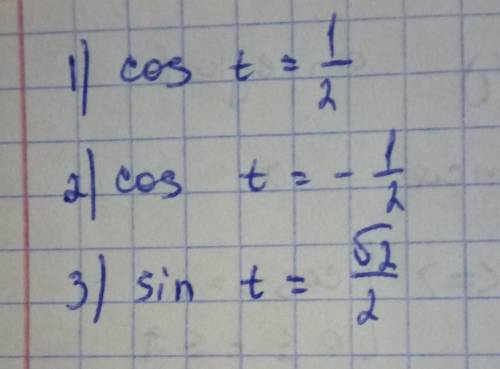 1) cos t = 1/2
2) cos t = - 1/2
3) sin t = √2/2